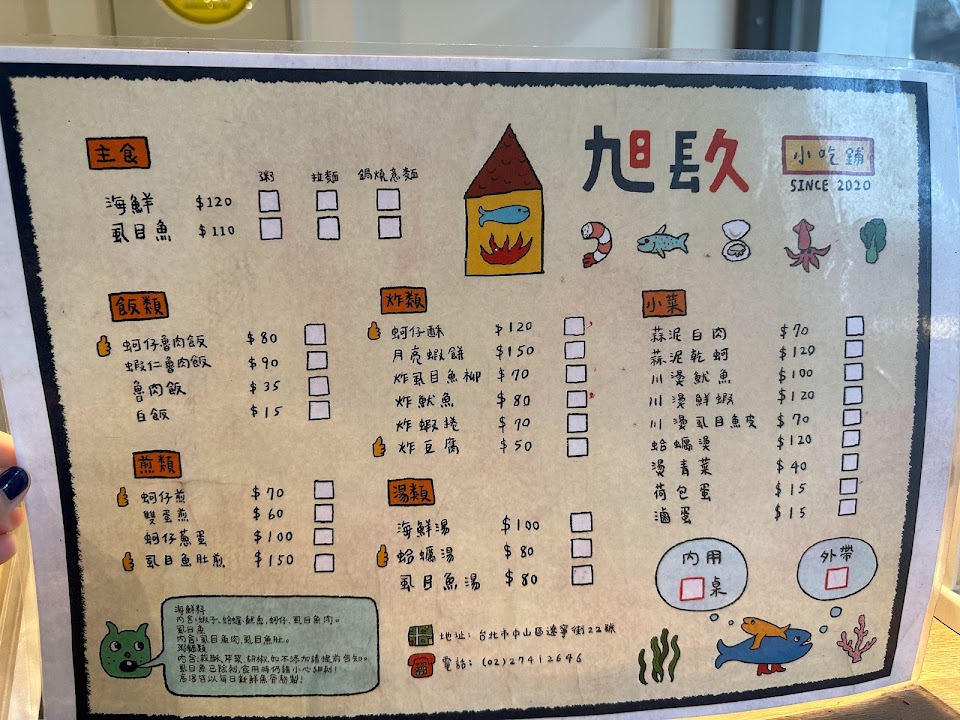 旭 镹
小吃舖
SINCE 2020
主食
粥 拉麵 鍋燒意麵
海鮮 $120
虱目魚 $110
飯類
蚵仔魯肉飯 $80
蝦仁魯肉飯 $90
魯肉飯 $35
白飯 $15
煎類
蚵仔煎 $70
雙蛋煎 $60
蚵仔蔥蛋 $100
虱目魚肚煎 $150
炸類
蚵仔酥 $120
月亮蝦餅 $150
炸虱目魚柳 $70
炸魷魚 $80
炸蝦捲 $70
炸豆腐 $50
湯類
海鮮湯 $100
蛤蠣湯 $80
虱目魚湯 $80
小菜
蒜泥白肉 $70
蒜泥乾蚵 $120
川燙魷魚 $100
川燙鮮蝦 $120
川燙虱目魚皮 $70
蛤蠣燙 $120
燙青菜 $40
荷包蛋 $15
滷蛋 $15
內用
桌
外帶
海鮮料
內含:蝦子、蛤蠣、魷魚、蚵仔、虱目魚肉。
虱目魚
內含:虱目魚肉、虱目魚肚。
粥麵類
內含:菽酥、芹菜、胡椒,如不添加請提前告知。
虱目魚已除刺,食用時仍請小心細刺!
高湯皆以每日新鮮魚骨熬製!
地址: 台北市中山區遼寧街22號
電話: (02)27412646